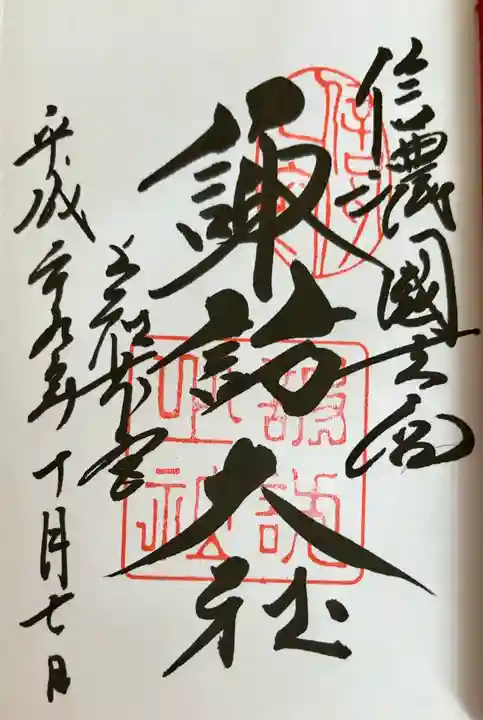 信濃國一之宮
諏訪大社
上社本宮
平成二九年十月七日